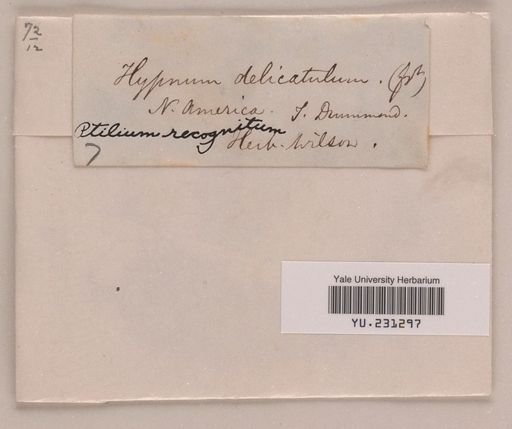 72
12
Hypnum delicatulum. (fr)
N. America. T. Drummond.
Ptilium recognitum
Herb. Wilson.
7
Yale University Herbarium
YU.231297